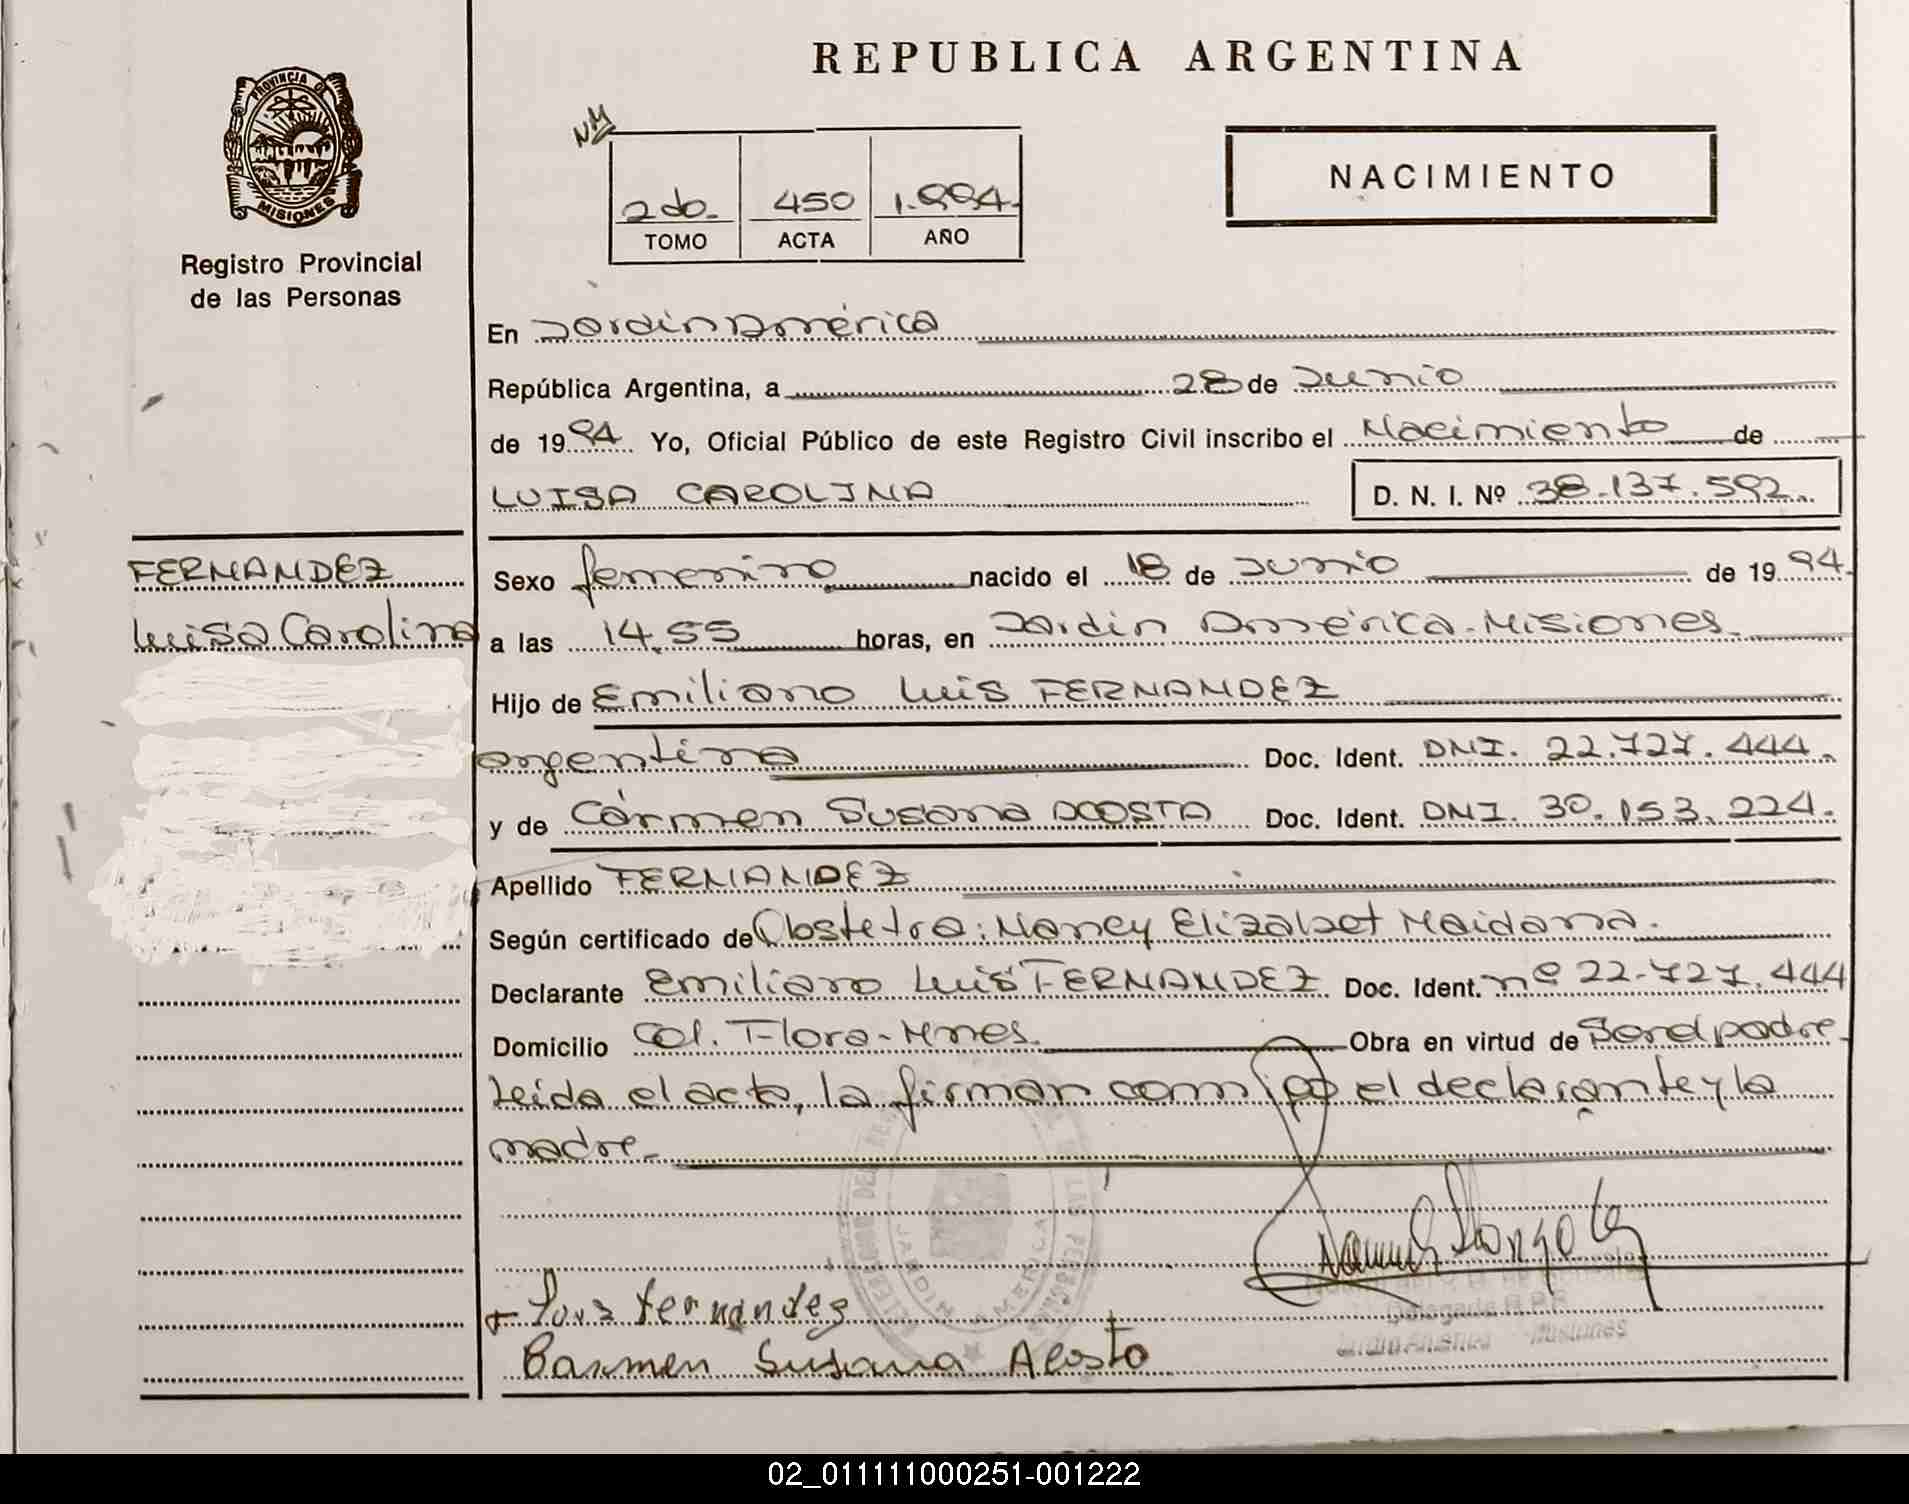 REPUBLICA ARGENTINA
PROVINCIA DE
MISIONES
Registro Provincial
de las Personas
NM
2do. 450 1.994.
TOMO ACTA AÑO
NACIMIENTO
En Jardín América
República Argentina, a 28 de Junio
de 1994 Yo, Oficial Público de este Registro Civil inscribo el Nacimiento de
LUISA CAROLINA D. N. I. Nº 38.137.592.
FERNANDEZ
Luisa Carolina
Sexo femenino nacido el 18 de Junio de 1994.
a las 14.55 horas, en Jardín América-Misiones.
Hijo de Emiliano Luis FERNANDEZ
argentina Doc. Ident. DNI. 22.727.444.
y de Cármen Susana ACOSTA Doc. Ident. DNI. 30.153.224.
Apellido FERNANDEZ
Según certificado de Obstetra: Nancy Elizabet Maidana.
Declarante Emiliano Luis FERNANDEZ Doc. Ident. nº 22-727.444
Domicilio Col. Flora-Mnes. Obra en virtud de Serelpadre
Leída el acta, la firman conmigo el declarante y la
madre.
JARDIN AMERICA
Delegada R.P.P.
Jardín América - Misiones
+ Luis fernandez
Carmen Susana Acosta
02_011111000251-001222